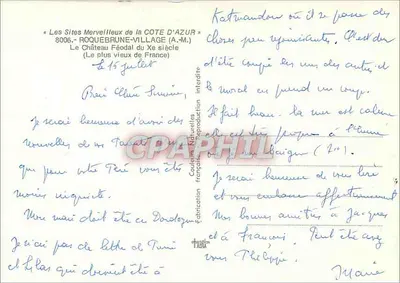 « Les Sites Merveilleux de la COTE D'AZUR »
8006.- ROQUEBRUNE-VILLAGE (A.-M.)
Le Château Féodal du Xe siècle
(Le plus vieux de France)
Le 15 juillet
Bien Chère Simone,
Je serai heureuse d'avoir des
nouvelles de
que pour votre Père vous êtes
moins inquiète.
Mon mari doit être en Dordogne
Je n'ai pas de lettre de
et hélas qui devait être à
Couleurs Naturelles
Fabrication Française - Reproduction interdite
CPARHIL
Katmandou où il se passe des
choses peu rejouissantes. C'est dur
d'être coupé les uns des autres, et
le moral en prend un coup.
Il fait beau. La mer est calme
(20°).
Je serai heureuse de vous lire
et vous embrasse affectueusement
Mes bonnes amitiés à Jacques
et à François. Peut être avez
vous Philippe.
Marie